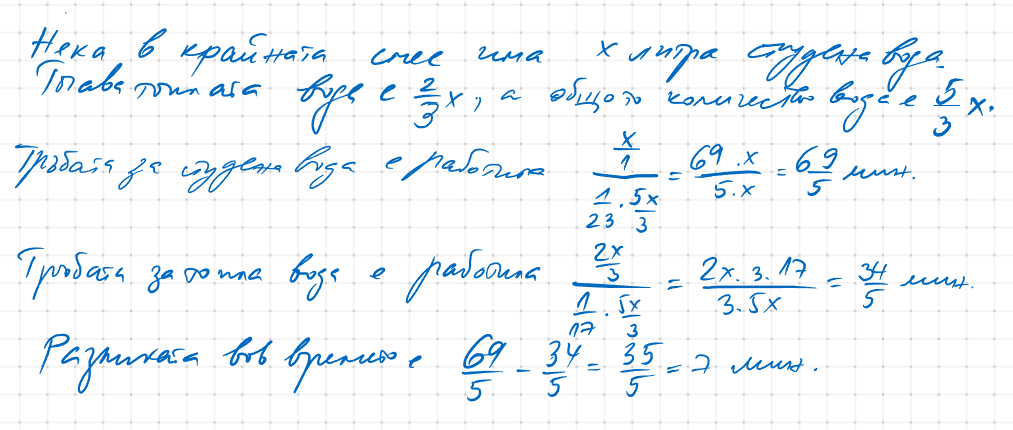 Нека в крайната смес има x литра студена вода.
Тогава топлата вода е \frac{2}{3}x, а общото количество вода е \frac{5}{3}x.
Тръбата за студена вода е работила \frac{\frac{x}{1}}{\frac{1}{23} \cdot \frac{5x}{3}} = \frac{69 \cdot x}{5 \cdot x} = \frac{69}{5} мин.
Тръбата за топла вода е работила \frac{\frac{2x}{3}}{\frac{1}{17} \cdot \frac{5x}{3}} = \frac{2x \cdot 3 \cdot 17}{3 \cdot 5x} = \frac{34}{5} мин.
Разликата във времето е \frac{69}{5} - \frac{34}{5} = \frac{35}{5} = 7 мин.